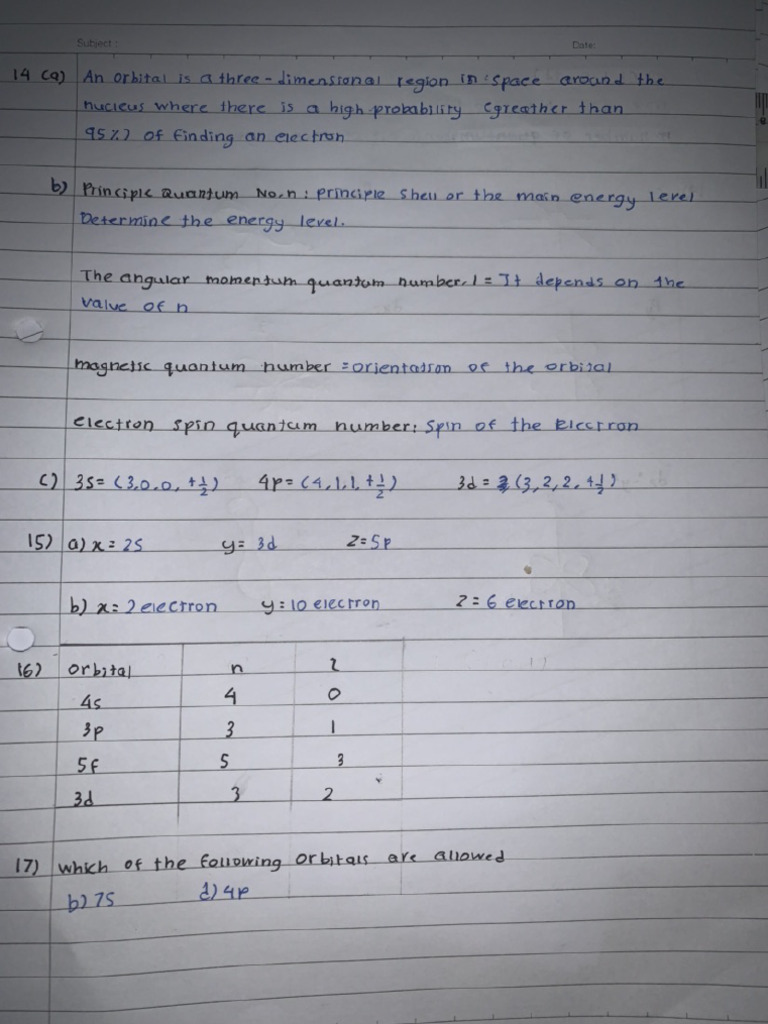 Subject :
Date:
14 (a) An orbital is a three - dimensional region in space around the
nucleus where there is a high probability (greather than
95%) of finding an electron
b) Principle Quantum No.n : principle shell or the main energy level
Determine the energy level.
The angular momentum quantum number, l = It depends on the
value of n
magnetic quantum number = orientation of the orbital
electron spin quantum number: Spin of the Electron
c) 3s = (3,0,0, +1/2) 4p = (4,1,1, +1/2) 3d = (3,2,2, +1/2)
15) a) x = 2s y = 3d z = 5p
b) x = 2 electron y = 10 electron z = 6 electron
16) orbital n l
4s 4 0
3p 3 1
5f 5 3
3d 3 2
17) which of the following orbitals are allowed
b) 7s d) 4p